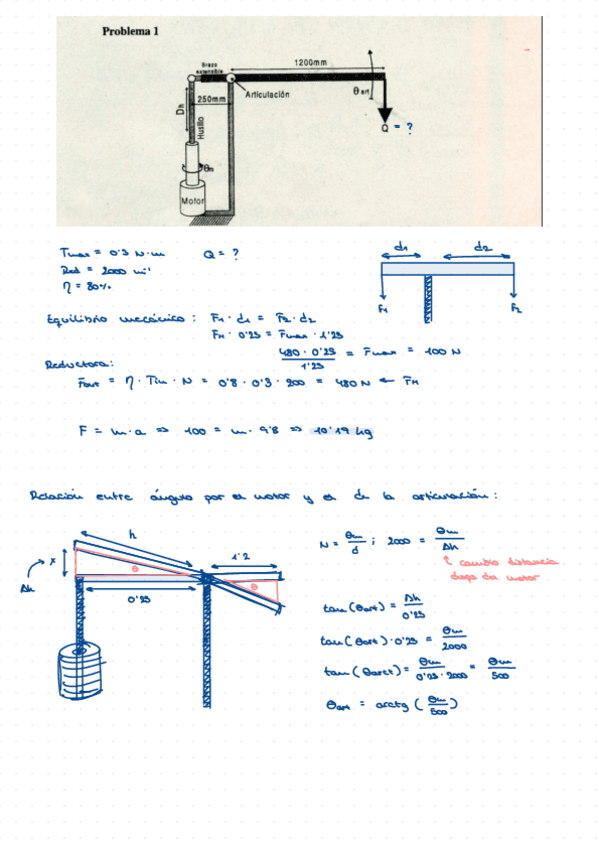 Problema 1
Brazo extensible
1200mm
250mm
Articulación
θ art
Dh
Husillo
θm
Motor
Q = ?
Tmax = 0'3 N·m Q = ?
Red = 2000 m⁻¹
η = 80%
d1 d2
F1 F2
Equilibrio mecánico: F1 · d1 = F2 · d2
FM · 0'25 = Fmax · 1'25
480 · 0'25 / 1'25 = Fmax = 100 N
Reductora:
Fout = η · Tin · N = 0'8 · 0'3 · 200 = 480 N ← FM
F = m · a => 100 = m · 9'8 => 10'19 kg
Relación entre ángulo por el motor y el de la articulación:
h
x
Δh
θ
0'25
1'2
θ
N = θm / d ; 2000 = θm / Δh
cambio distancia
tan(θart) = Δh / 0'25
tan(θart) · 0'25 = θm / 2000
tan(θart) = θm / 0'25 · 2000 = θm / 500
θart = arctg (θm / 500)